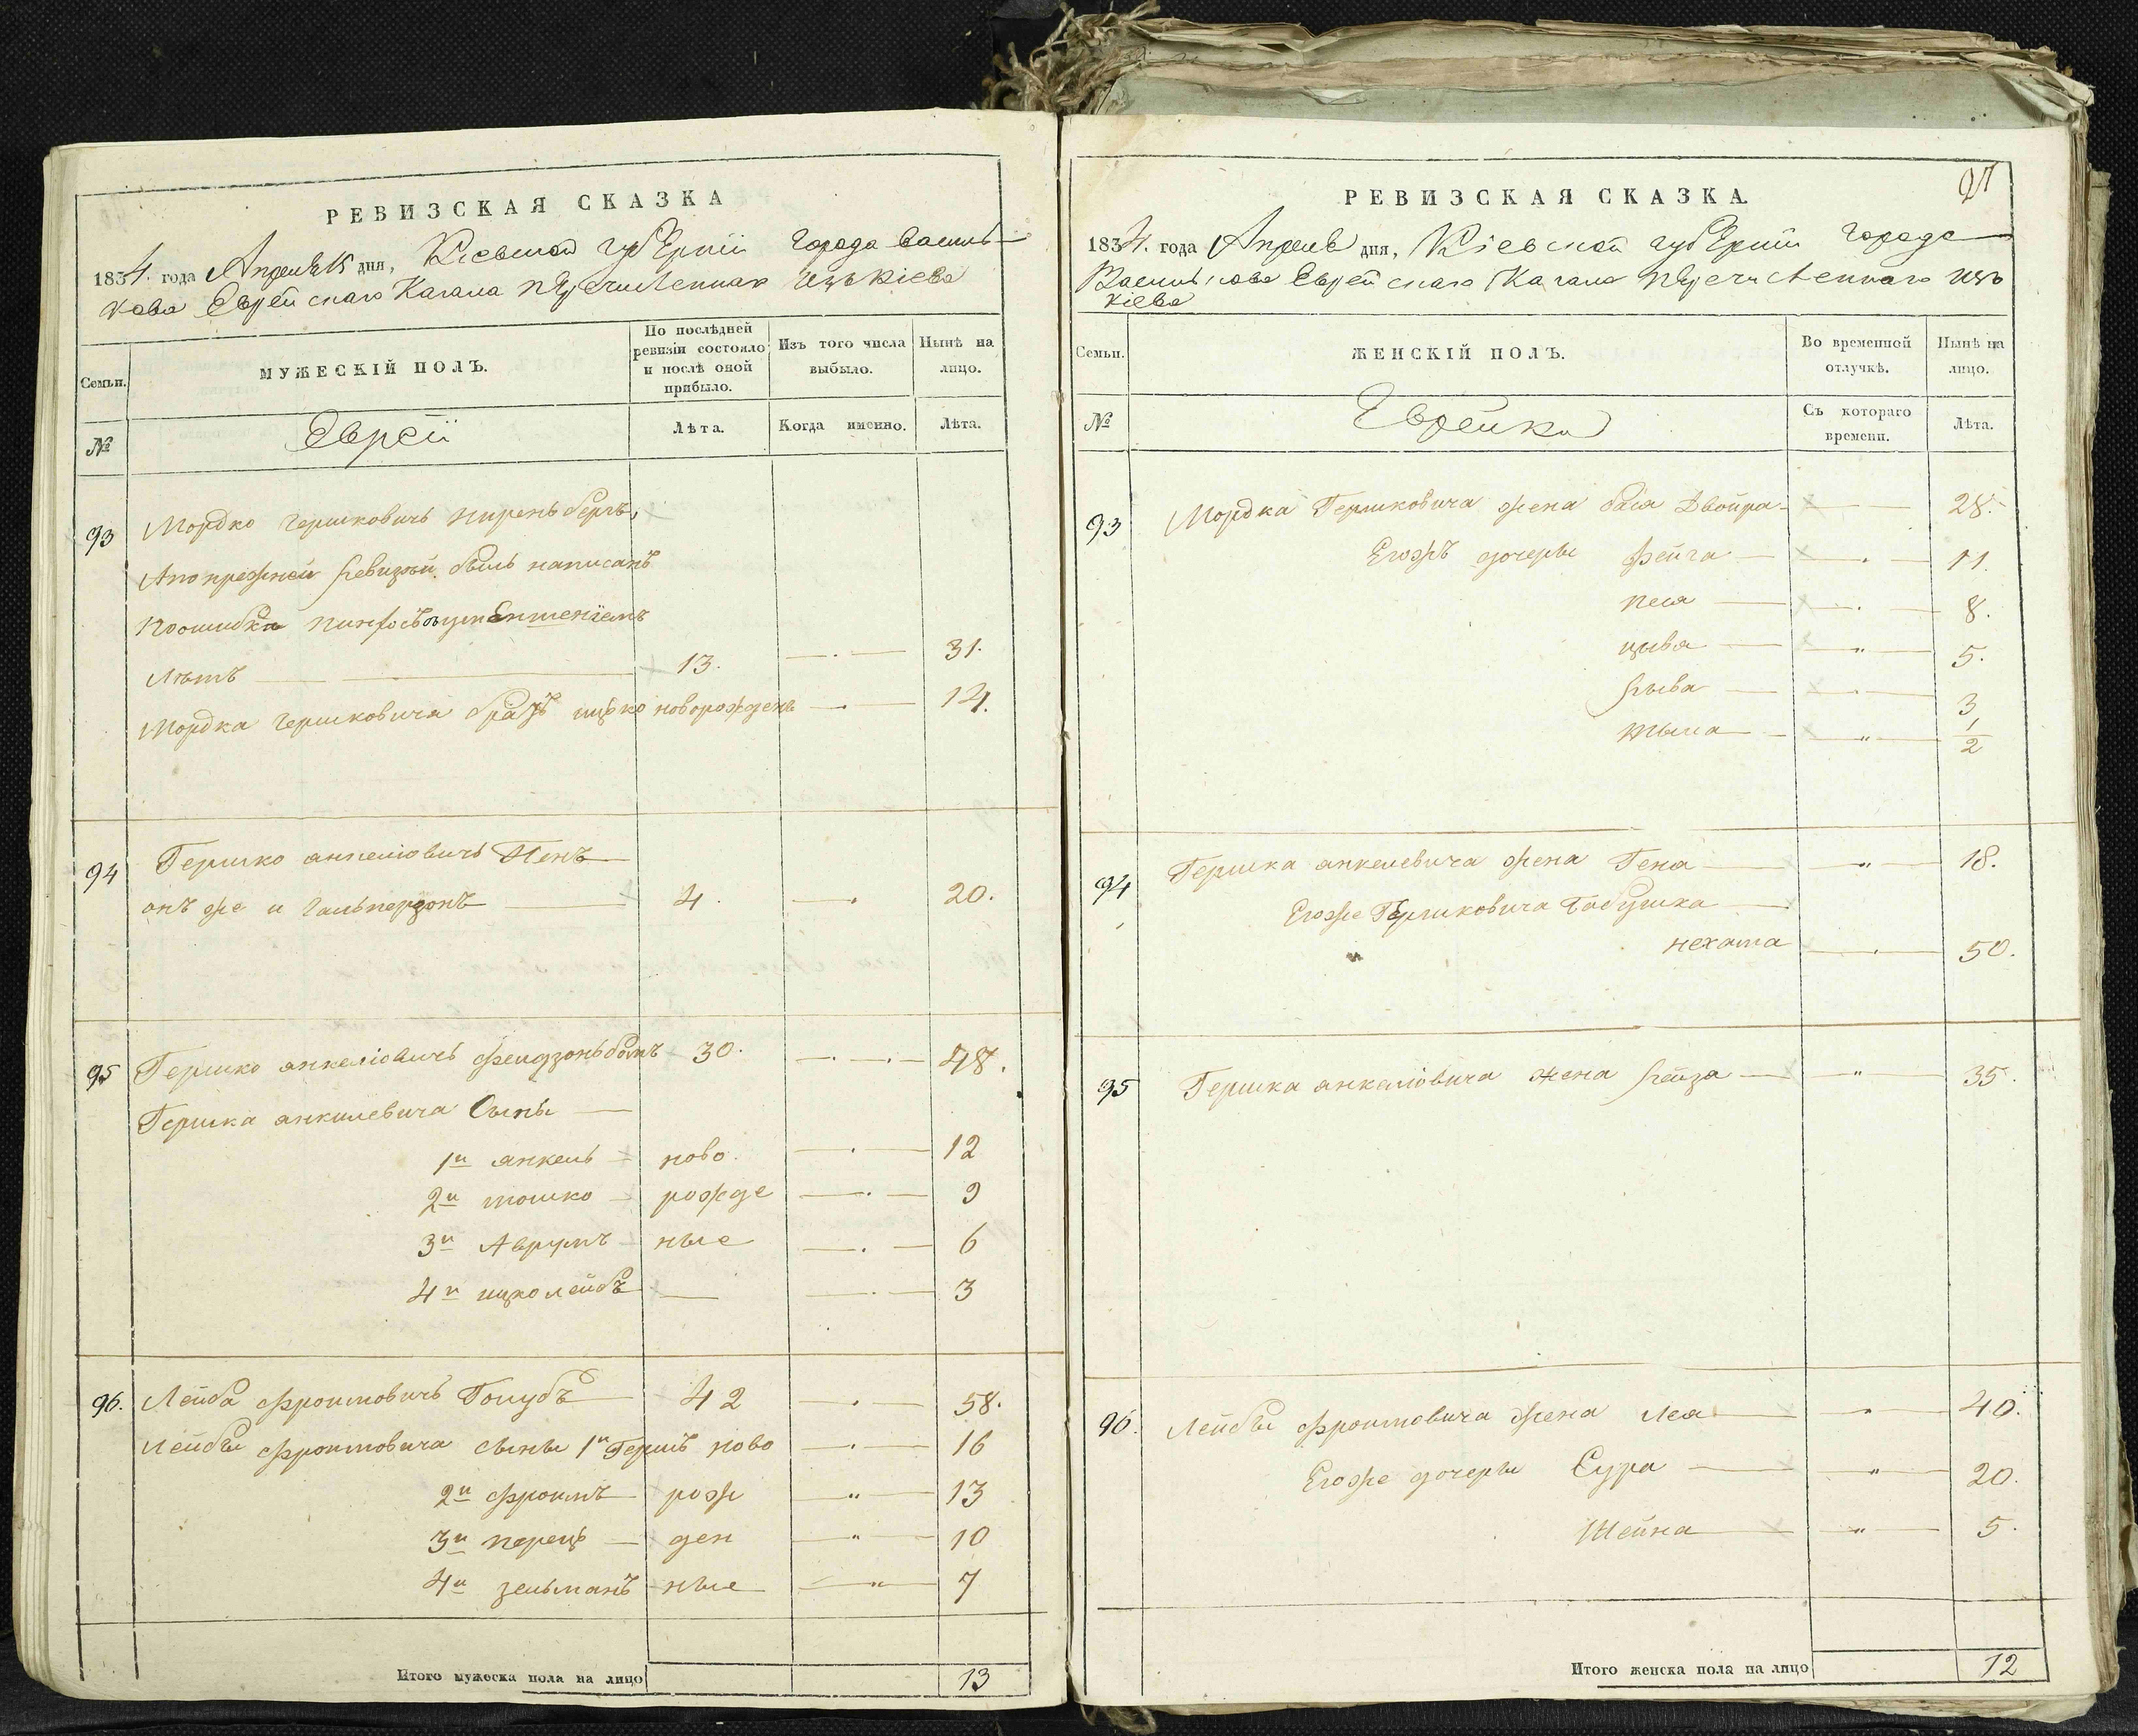 РЕВИЗСКАЯ СКАЗКА
1834. года Апреля 15 дня, Кіевской губерніи города Василь-
кова Еврейскаго Кагала перечисленнаго изъ Кіева
Семьи.
МУЖЕСКІЙ ПОЛЪ.
По послѣдней ревизіи состояло и послѣ оной прибыло.
Изъ того числа выбыло.
Нынѣ на лицо.
№
Еврей
Лѣта.
Когда именно.
Лѣта.
93 Мордко Гершковичъ Ниренберъ,
Апопрежней ревизіи былъ написанъ
поошибки
Лѣтъ 13. 31.
Мордка Гершковича братъ ицко новорожденъ 14.
94 Гершко анкеліовичъ Кенъ
онъ же и Гальперзонъ 4. 20.
95 Гершко анкеліовичъ 30. 48.
Гершка анкилевича Сыны
1й анкель ново. 12
2й мошко рожде 9
3й Аврумъ ные 6
4й ицко лейбъ 3
96. Лейба Фроимовичъ Голубъ 42 58.
Лейбы Фроимовича сыны 1й Гершъ ново 16
2й Фроимъ рож 13
3й перецъ ден 10
4й зельманъ ные 7
Итого мужеска пола на лицо 13
РЕВИЗСКАЯ СКАЗКА.
1834. года Апреля дня, Кіевской губерніи города
Василькова Еврейскаго Кагала перечисленнаго изъ
Кіева
Семьи.
ЖЕНСКІЙ ПОЛЪ.
Во временной отлучкѣ.
Нынѣ на лицо.
№
Еврейки
Съ котораго времени.
Лѣта.
93 Мордка Гершковича жена бася Двойра 28.
Егожъ дочеры Фейга 11.
песя 8.
цыва 5.
рыва 3
1/2
94 Гершка анкелевича жена Гена 18.
Егоже Гершковича бабушка
нехама 50.
95 Гершка анкеліовича жена рейза 35.
96. Лейбы Фроимовича жена Леа 40.
Егоже дочеры Сура 20.
Шейна 5.
Итого женска пола на лицо 12